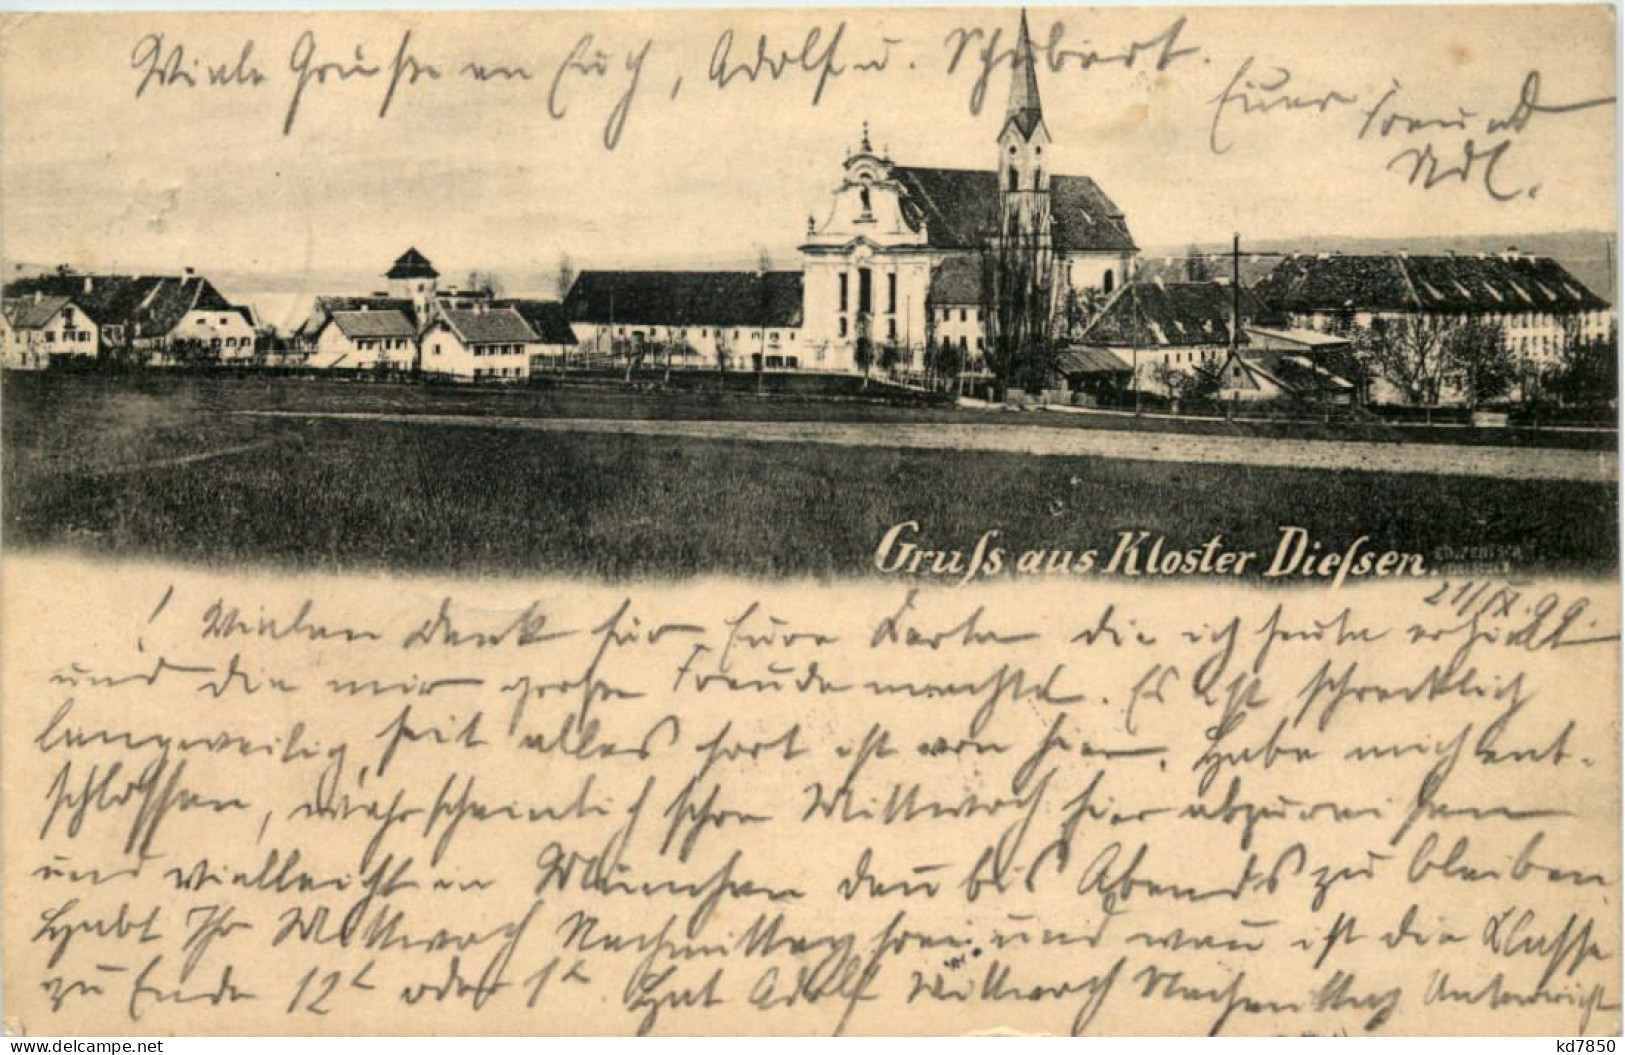 Viele Grüße an Euch, Adolf u. Schubert.
Euer Freund
Ndl.
Gruſs aus Kloster Dieſsen.
21/IX.99.
! Vielen Dank für Eure Karte die ich heute erhielt
und die mir große Freude machte. Es ist schrecklich
langweilig, seit alles fort ist von hier. Habe mich ent-
schlossen, wahrscheinlich schon Mittwoch hier abzureisen
und vielleicht in München den bis Abends zu bleiben
Habt Ihr Mittwoch Nachmittag frei und wan ist die Klasse
zu Ende 12h oder 1h. Hat Adolf Mittwoch Nachmittag Unterricht
kd7850
www.delcampe.net